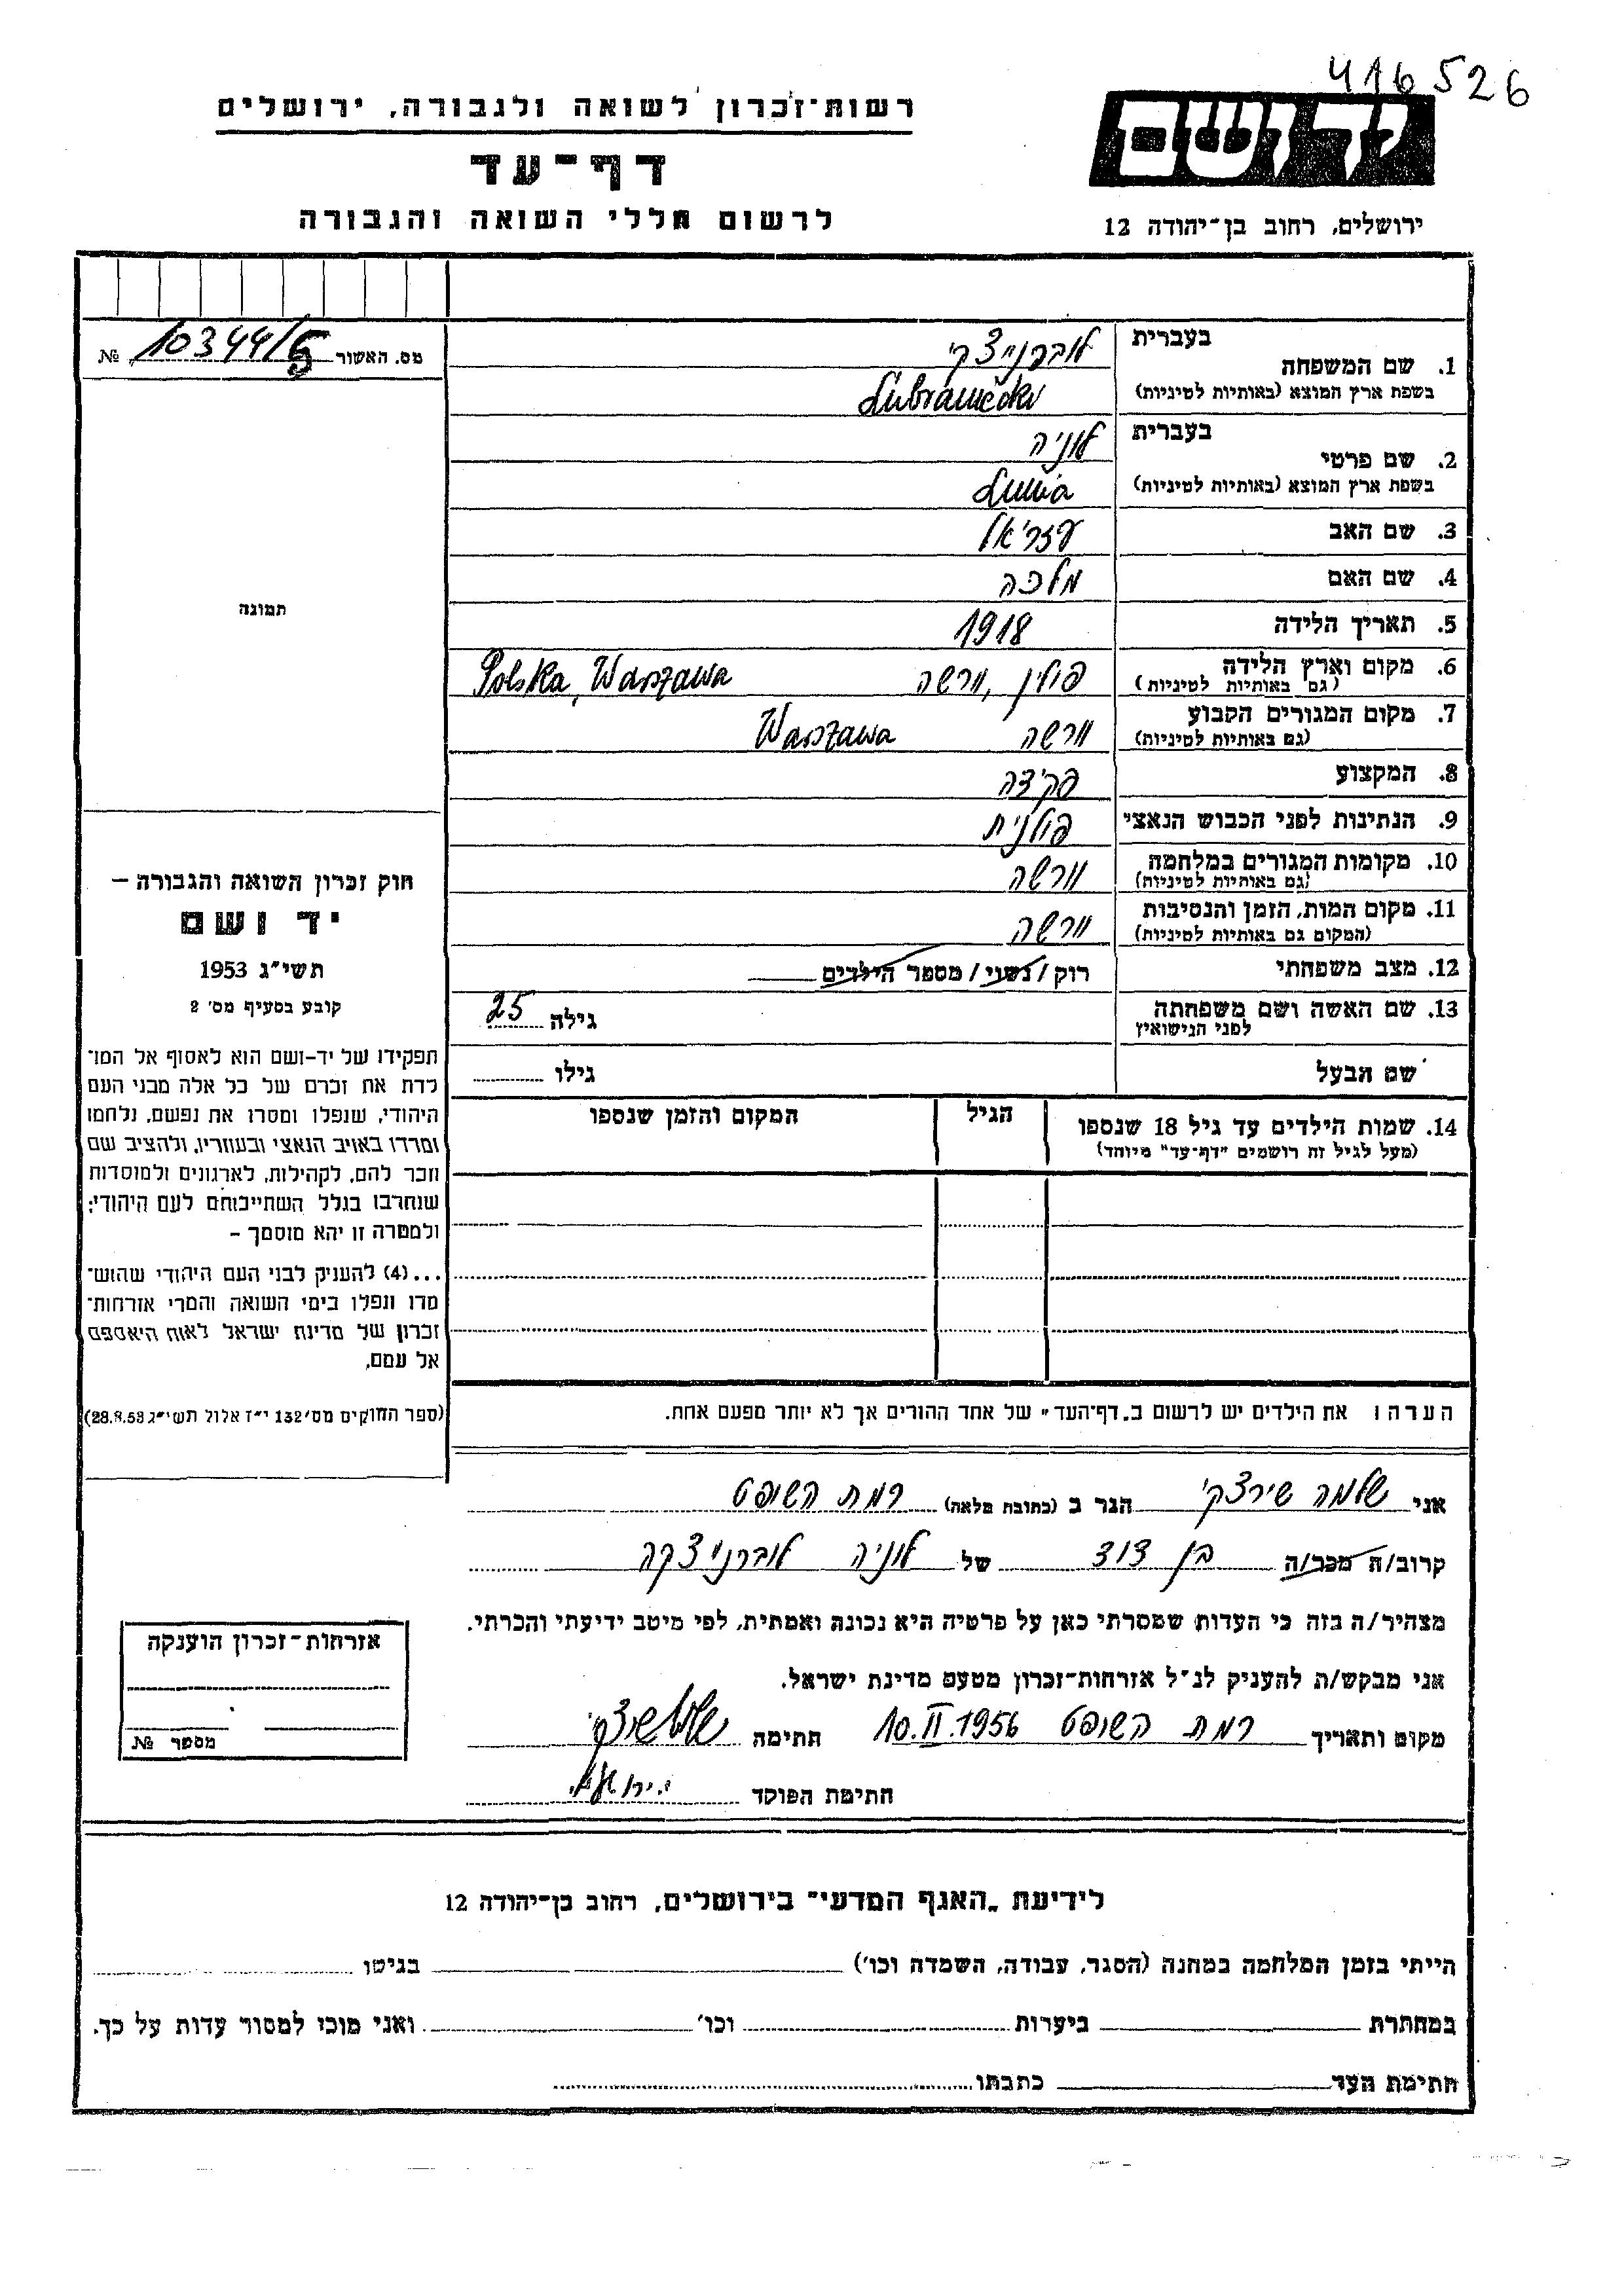 416526
רשות-זכרון לשואה ולגבורה, ירושלים
דף-עד
לרשום חללי השואה והגבורה
ידושם
ירושלים, רחוב בן-יהודה 12
מס. האשור 10344/5 №
תמונה
חוק זכרון השואה והגבורה –
יד ושם
תשי"ג 1953
קובע בסעיף מס' 2
תפקידו של יד-ושם הוא לאסוף אל המו־
לדת את זכרם של כל אלה מבני העם
היהודי, שנפלו ומסרו את נפשם, נלחמו
ומרדו באויב הנאצי ובעוזריו, ולהציב שם
וזכר להם, לקהילות, לארגונים ולמוסדות
שנחרבו בגלל השתייכותם לעם היהודי;
ולמטרה זו יהא מוסמך –
...(4) להעניק לבני העם היהודי שהוש־
מדו ונפלו בימי השואה והמרי אזרחות־
זכרון של מדינת ישראל לאות היאספם
אל עמם.
(ספר החוקים מס' 132 י"ז אלול תשי"ג 28.8.53)
בעברית לוברנייצקי
1. שם המשפחה
בשפת ארץ המוצא (באותיות לטיניות)
בעברית לוניה
2. שם פרטי
בשפת ארץ המוצא (באותיות לטיניות) Lunia
3. שם האב עזריאל
4. שם האם מלכה
5. תאריך הלידה 1918
6. מקום וארץ הלידה פולין, וורשה Polska, Warszawa
(גם באותיות לטיניות)
7. מקום המגורים הקבוע וורשה Warszawa
(גם באותיות לטיניות)
8. המקצוע פקידה
9. הנתינות לפני הכבוש הנאצי פולנית
10. מקומות המגורים במלחמה וורשה
(גם באותיות לטיניות)
11. מקום המות, הזמן והנסיבות וורשה
(המקום גם באותיות לטיניות)
12. מצב משפחתי רוק/נשוי/מספר הילדים
13. שם האשה ושם משפחתה גילה 25
לפני הנישואין
שם הבעל גילו
14. שמות הילדים עד גיל 18 שנספו הגיל המקום והזמן שנספו
(מעל לגיל זה רושמים "דף-עד" מיוחד)
הערה: את הילדים יש לרשום ב„דף-העד" של אחד ההורים אך לא יותר מפעם אחת.
אני שלמה שירצקי הגר ב (כתובת מלאה) רמת השופט
קרוב/ה מכר/ה בן דוד של לוניה לוברנייצקה
מצהיר/ה בזה כי העדות שמסרתי כאן על פרטיה היא נכונה ואמתית, לפי מיטב ידיעתי והכרתי.
אני מבקש/ת להעניק לנ"ל אזרחות-זכרון מטעם מדינת ישראל.
מקום ותאריך רמת השופט 10.II.1956 חתימה
חתימת הפוקד
אזרחות-זכרון הוענקה
מספר №
לידיעת „האגף המדעי" בירושלים, רחוב בן-יהודה 12
הייתי בזמן המלחמה במחנה (הסגר, עבודה, השמדה וכו') בגיטו
במחתרת ביערות וכו' ואני מוכן למסור עדות על כך.
חתימת העד כתבתו